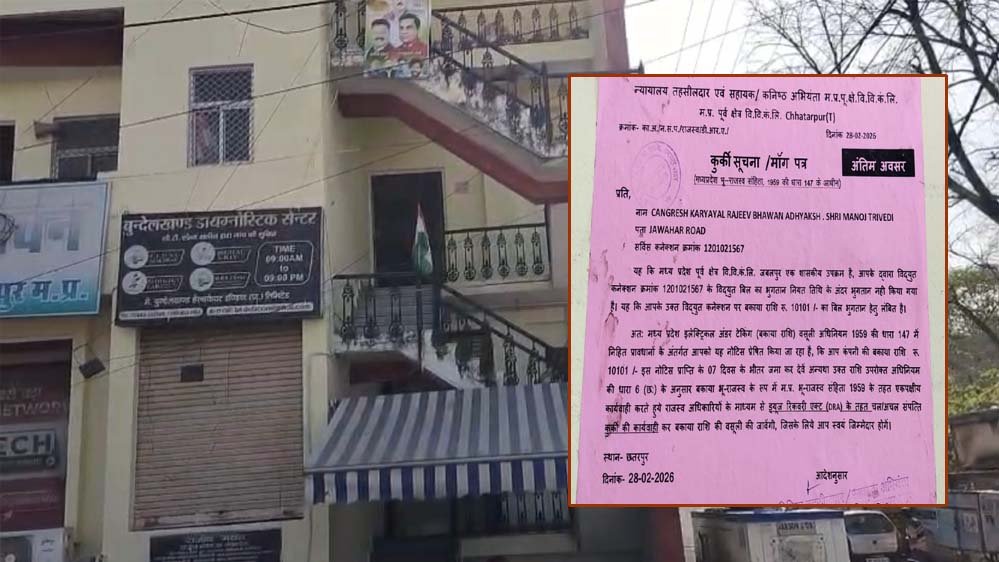 बुन्देलखण्ड डायग्नोस्टिक सेन्टर
TIME
09:00AM
to
09:00 PM
मे. बुन्देलखण्ड हेल्थकेयर इण्डिया (प्रा.) लिमिटेड
पुर म.प्र.
NETWORK
TECH
न्यायालय तहसीलदार एवं सहायक/ कनिष्ठ अभियंता म.प्र.पू.क्षे.वि.वि.कं.लि.
म.प्र. पूर्व क्षेत्र वि.वि.कं.लि. Chhatarpur(T)
क्रमांक- का.अ/न.स.प./राजस्व/डी.आर.ए./ दिनांक 28-02-2026
कुर्की सूचना /मॉग पत्र अंतिम अवसर
(मध्यप्रदेश भू-राजस्व संहिता, 1959 की धारा 147 के आधीन)
प्रति,
नाम CANGRESH KARYAYAL RAJEEV BHAWAN ADHYAKSH . SHRI MANOJ TRIVEDI
पता JAWAHAR ROAD
सर्विस कनेक्शन क्रमांक 1201021567
यह कि मध्य प्रदेश पूर्व क्षेत्र वि.वि.कं.लि. जबलपुर एक शासकीय उपक्रम है, आपके द्वारा विद्युत
कनेक्शन क्रमांक 1201021567 के विद्युत बिल का भुगतान नियत तिथि के अंदर भुगतान नही किया गया
है। यह कि आपके उक्त विद्युत कनेक्शन पर बकाया राशि रू. 10101 /- का बिल भुगतान हेतु लंबित है।
अतः मध्य प्रदेश इलेक्ट्रिकल अंडर टेकिंग (बकाया राशि) वसूली अधिनियम 1959 की धारा 147 में
निहित प्रावधानों के अंतर्गत आपको यह नोटिस प्रेषित किया जा रहा है, कि आप कंपनी की बकाया राशि रू.
10101 /- इस नोटिस प्राप्ति के 07 दिवस के भीतर जमा कर देवें अन्यथा उक्त राशि उपरोक्त अधिनियम
की धारा 6 (छः) के अनुसार बकाया भू-राजस्व के रूप में म.प्र. भू-राजस्व संहिता 1959 के तहत एकपक्षीय
कार्यवाही करते हुये राजस्व अधिकारियों के माध्यम से ड्यूज रिकवरी एक्ट (DRA) के तहत चल/अचल संपत्ति
कुर्की की कार्यवाही कर बकाया राशि की वसूली की जावेगी, जिसके लिये आप स्वयं जिम्मेदार होगें।
स्थान- छतरपुर
दिनांक- 28-02-2026 आदेशनुसार